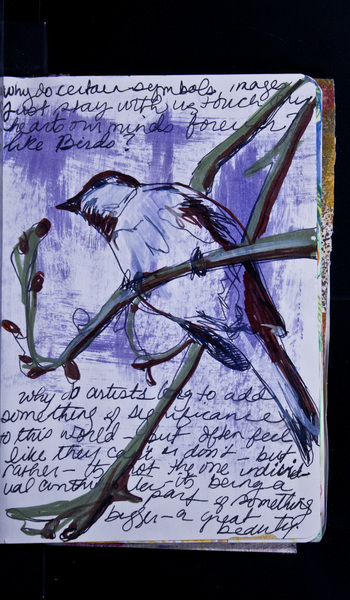 why do certain symbols, images
just stay with us, touching
hearts our minds forever?
like Birds?
why do artists long to add
something of significance
to this world - but often feel
like they can't or don't - but
rather - it's not the one individ-
ual contributer - it's being a
part of something
bigger - a great
beauty.